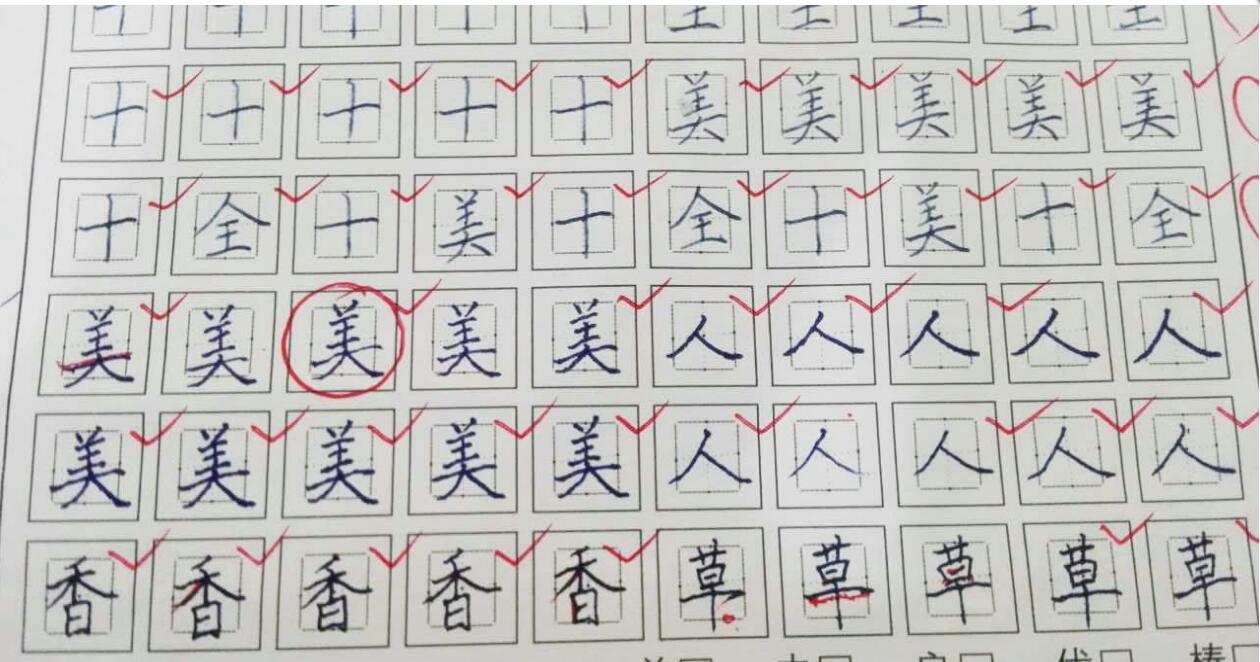 十 十 十 十 十 全 全 全 全 全
十 十 十 十 十 美 美 美 美 美
十 全 十 美 十 全 十 美 十 全
美 美 美 美 美 人 人 人 人 人
美 美 美 美 美 人 人 人 人 人
香 香 香 香 香 草 草 草 草 草